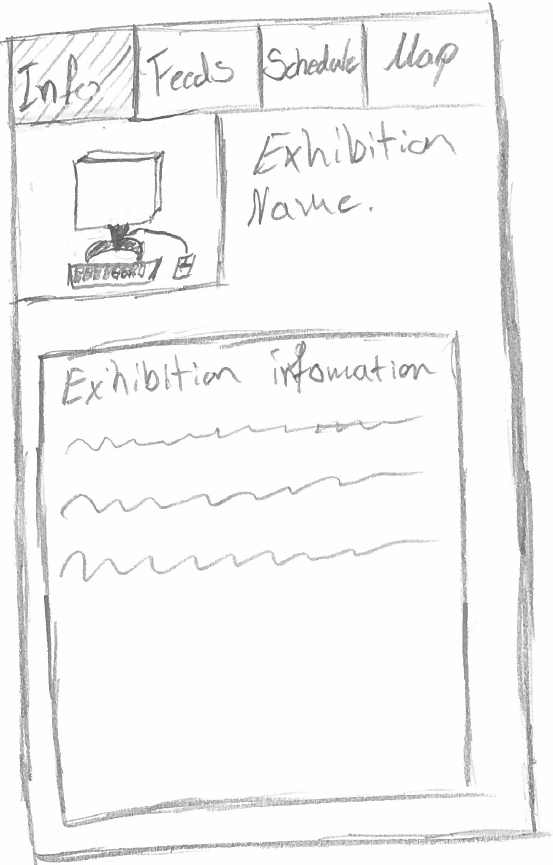 Info Feeds Schedule Map
Exhibition
Name.
Exhibition infomation